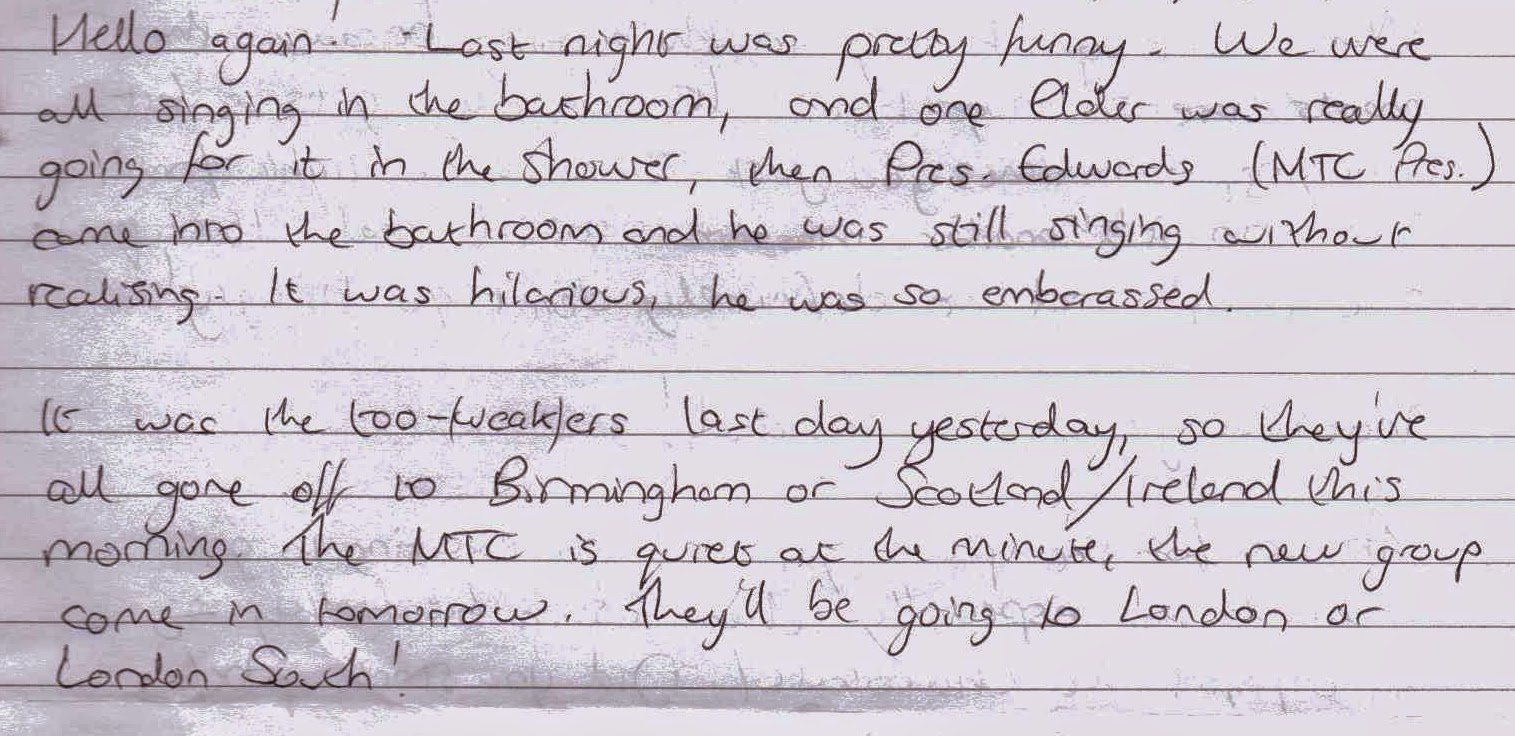 Hello again. Last night was pretty funny. We were
all singing in the bathroom, and one Elder was really
going for it in the shower, then Pres. Edwards (MTC Pres.)
came into the bathroom and he was still singing without
realising. It was hilarious, he was so embarassed.
It was the too-weakers last day yesterday, so they've
all gone off to Birmingham or Scotland/Ireland this
morning. The MTC is quiet at the minute, the new group
come in tomorrow. They'll be going to London or
London South!